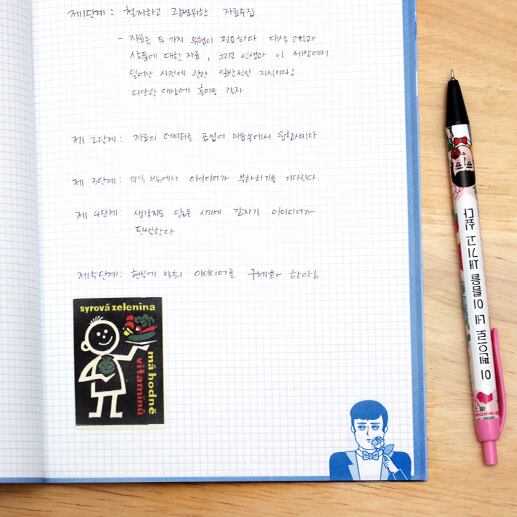 제1단계: 철저하고 광범위한 자료수집
- 자료는 두 가지 유형이 필요하다 대상고객과
상품에 대한 자료, 그리고 인생과 이 세상에서
일어난 사건에 관한 일반적인 지식이다!
다양한 대상에 흥미를 갖자
제 2단계: 자료의 데이터를 곱씹어 마음속에서 통합시킨다
제 3단계: 의식 밖에서 아이디어가 부화하기를 기다린다
제 4단계: 생각지도 않은 시기에 갑자기 아이디어가
탄생한다
제5단계: 현실에 맞추어 아이디어를 구체화 한다!
syrová zelenina
má hodně
vitaminů
이 펜으로 네 이름을 새기고 싶다